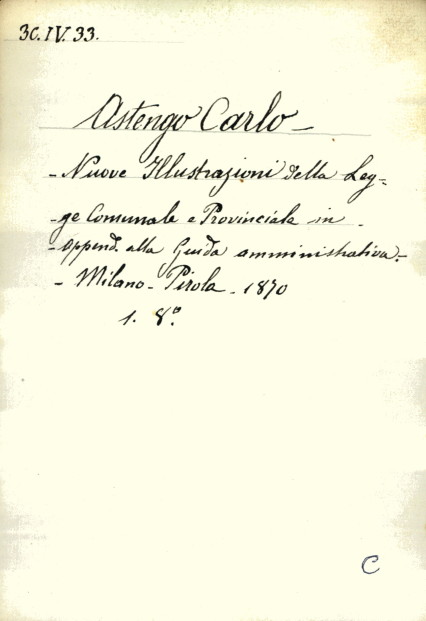 3C.IV.33.
Astengo Carlo -
- Nuove Illustrazioni della Leg=
- ge Comunale e Provinciale in -
- append. alla Guida amministrativa. -
- Milano - Pirola - 1870
1. 8º.
C